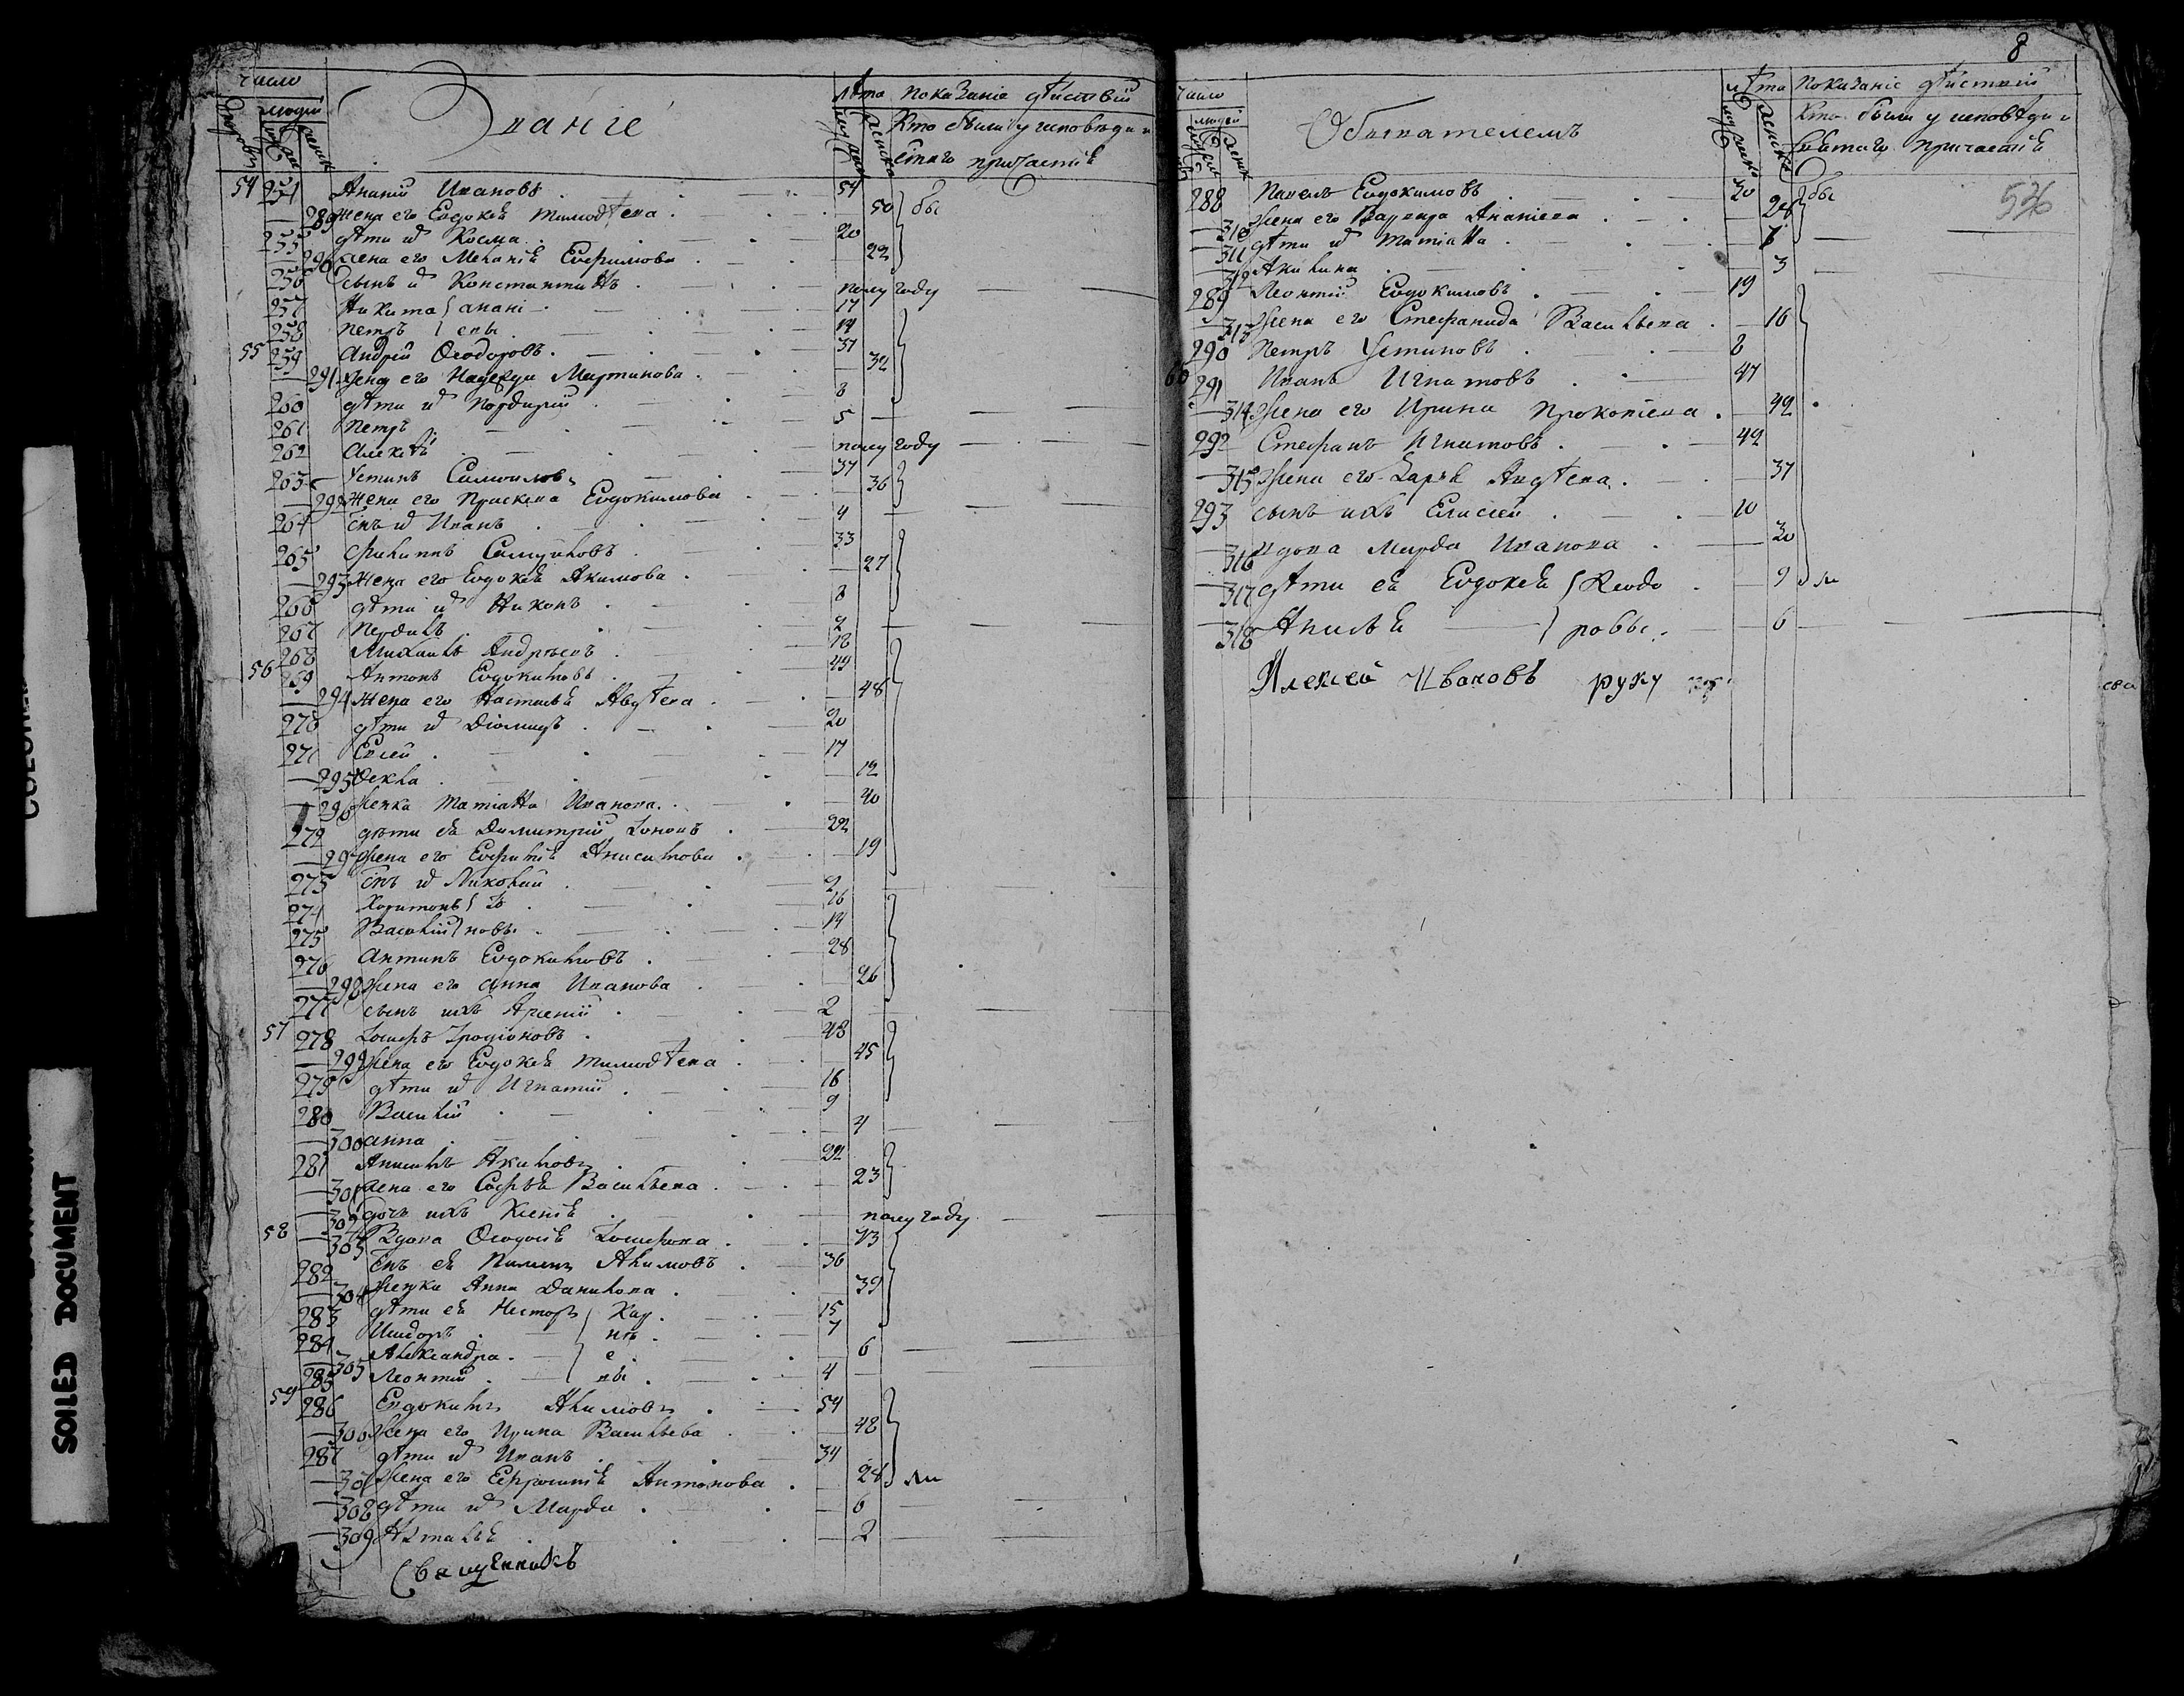 число
людей
Званіе
лѣта показаніе дѣйствій
Кто были у исповѣди и
ст҃аго причастія
54 254 Ананій Ивановъ 54
289 Жена его Евдокея Тимоѳѣева 50 бы
255 дѣти их Косма 20
290 жена его Меланія Ефимова 22
256 Сынъ их Константинъ полугоду
257 Никита анані 17
258 Петръ евы 14
55 259 Андрей Ѳеодоровъ 37
291 Жена его Надежда Мартинова 32
260 дѣти их Порфирий 8
261 Петръ 5
262 Алексѣй полугоду
263 Устинъ Самоиловъ 37
292 Жена его Праскева Евдокимова 36
264 Сн҃ъ их Иванъ 4
265 Филиппъ Самуиловъ 33
293 Жена его Евдокея Акимова 27
266 дѣти их Никонъ 8
267 2
268 Михаилъ Андрѣевъ 18
56 269 Антонъ Евдокимовъ 49
294 Жена его Настасья Авдѣева 48
270 дѣти их Діомидъ 20
271 Елсей 17
295 Ѳекла 12
296 Женка Татианна Иванова 40
272 дѣти ея Димитрий 22
297 Жена его Евфимія Анисимова 19
273 Сн҃ъ их Николай 2
274 Харитонъ 16
275 Василій новы 14
276 Антипъ Евдокимовъ 28
298 Жена его Анна Иванова 26
277 сынъ ихъ Арсений 2
57 278 Іосифъ Іродіоновъ 48
299 Жена его Евдокея Тимоѳѣева 45
279 дѣти их Игнатий 16
280 Василій 9
300 анна 4
281 Анисимъ Акимовъ 22
301 Жена его Софья Васильева 23
302 дочь ихъ Ксенія полугоду
58 303 Вдова Ѳеодосія Іосифова 73
282 Сн҃ъ ея Пименъ Акимовъ 36
304 Женка Анна Данилова 39
283 дѣти ея Несторъ 15
284 Исидоръ 7
305 Александра 6
285 Леонтий 4
59 286 Евдокимъ Акимовъ 54
306 Жена его Ирина Васильева 48
287 дѣти их Иванъ 34
307 Жена его Ефросинія Антонова 28 ли
308 дѣти их Марѳа 6
309 Наталья 2
Священникъ
8
число
людей
Обывателемъ
лѣта показаніе дѣйствий
Кто были у исповѣди и
святаго причастія
536
288 Павелъ Евдокимовъ 30 бы
310 Жена его Варвара Ананіева 28
311 дѣти их Татианна
312 Акилина 3
289 Леонтий Евдокимовъ 19
313 Жена его Стефанида Васильева 16
290 Петръ Устиновъ 8
60 291 Иванъ Игнатовъ 47
314 Жена его Ирина Прокопіева 42
292 Стефанъ Игнатовъ 42
315 Жена его Дарья Авдѣева 37
293 сынъ ихъ Елисей 10
316 вдова Марѳа Иванова 30
317 дѣти ея Евдокея Ѳеодо 9 ли
318 Анисья ровы 6
Алексей Ивановъ руку